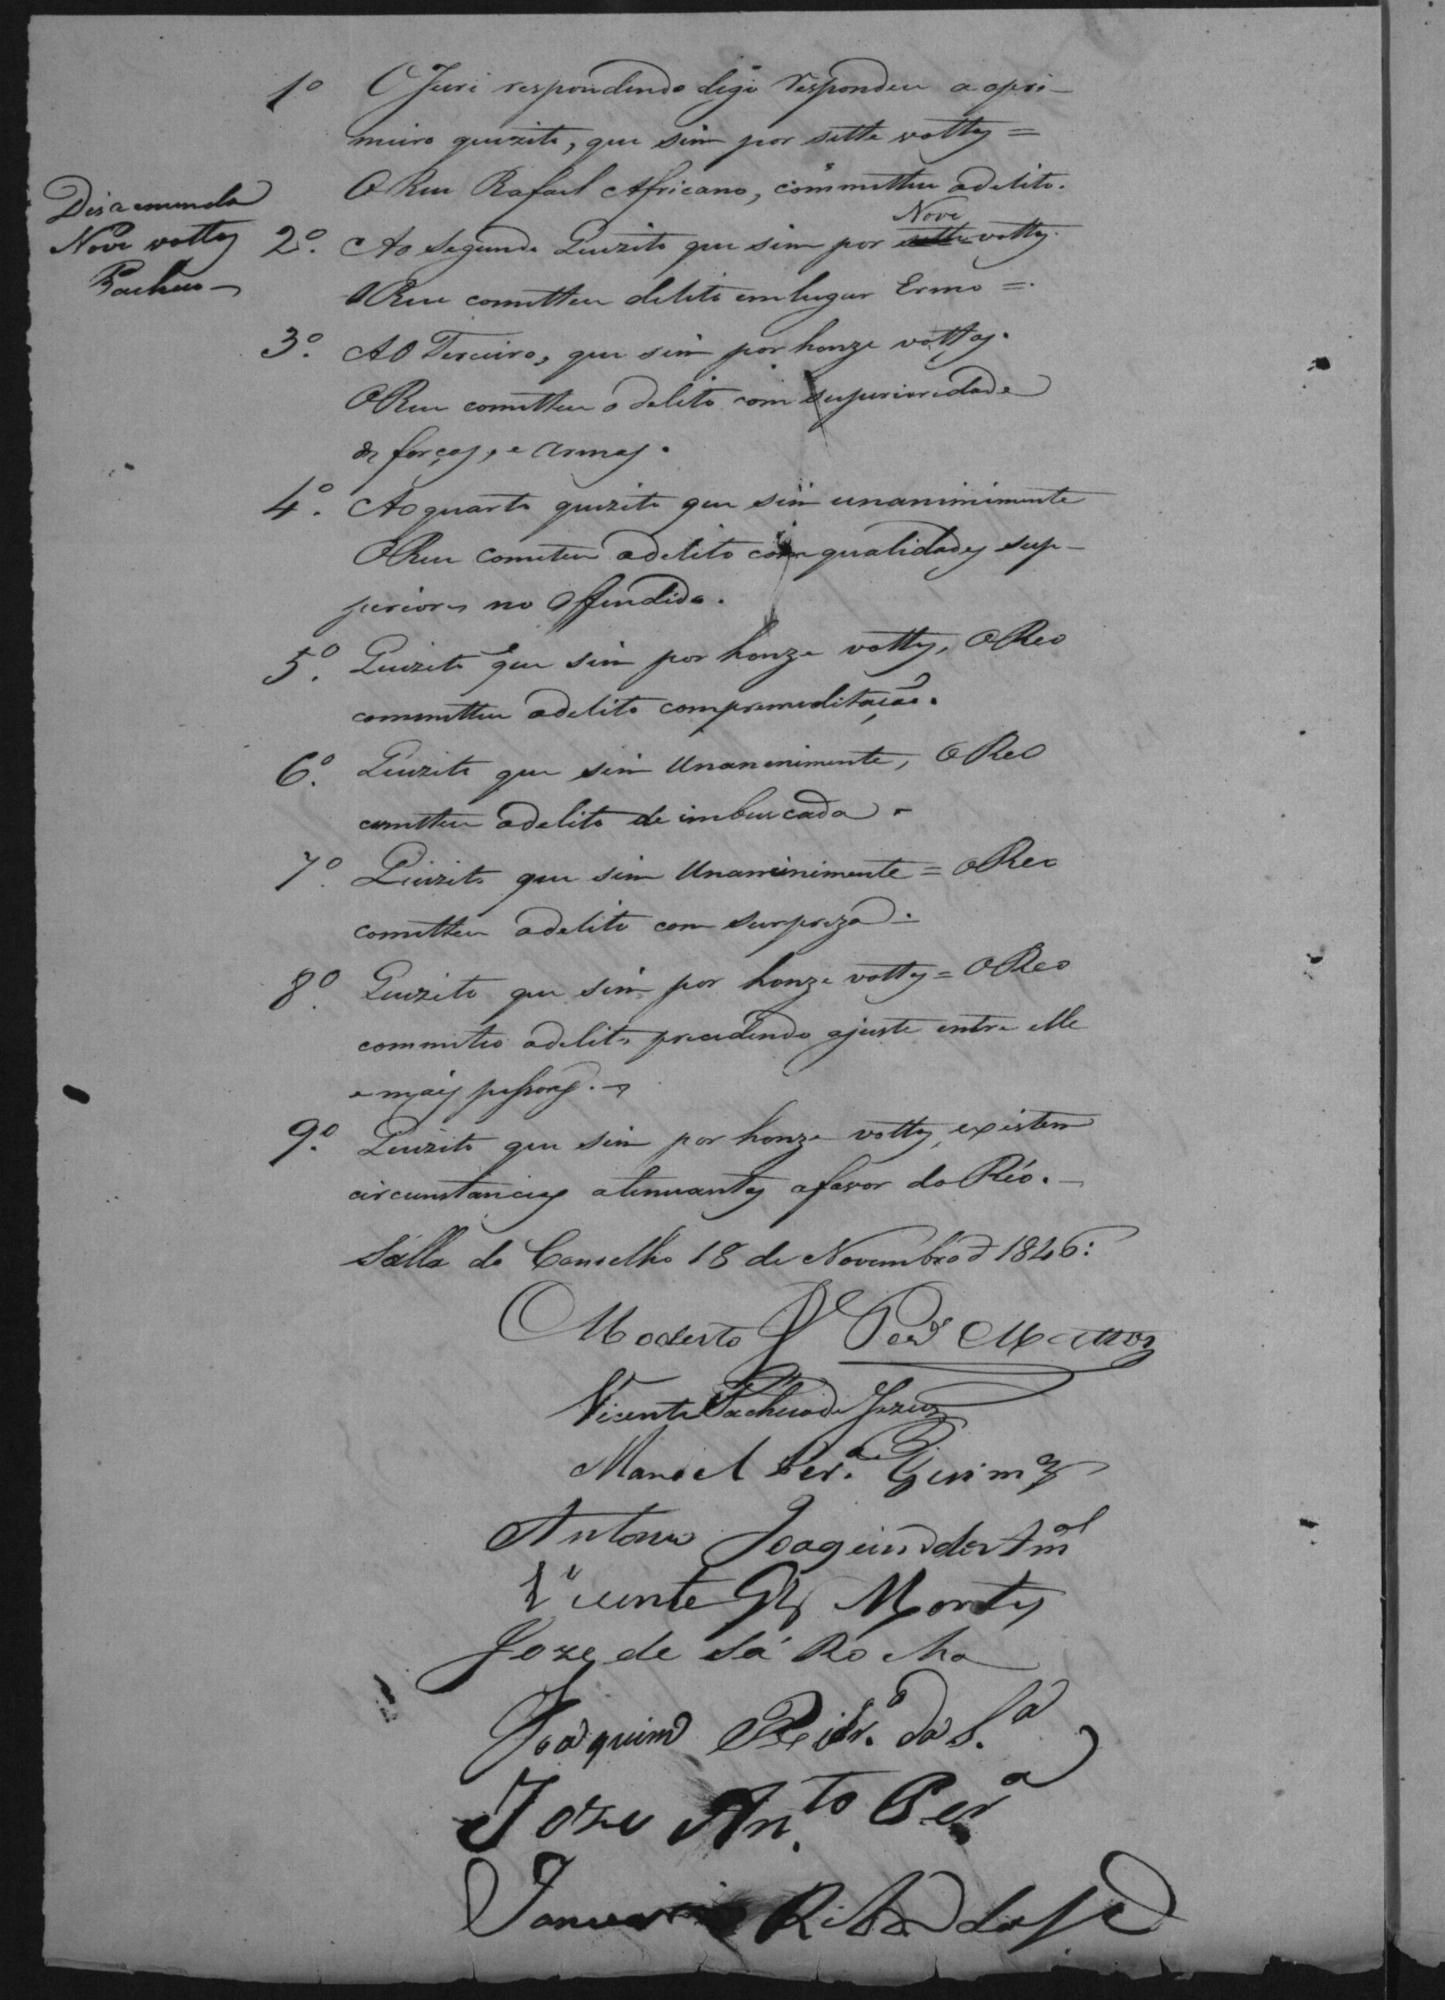 1º O Juri respondendo digo Respondeu a o pri-
meiro quizito, que sim por sette vottos =
O Reu Rafael Africano, committeu o delito.
Diz a emenda
Nove vottos
Pacheco
2º. Ao segundo Quizito que sim por sette Nove vottos.
O Reu comitteu delito em lugar Ermo =.
3º. Ao Terceiro, que sim por honze vottos.
O Reu comitteu o delito com superioridade
de forças, e armas.
4º. Ao quarto quizito que sim unanimimente
O Reu cometeu o delito com qualidades sup-
periores no Offendido.
5º. Quizito que sim por honze vottos, O Reo
committeu o delito com premeditação.
6º. Quizito que sim Unanimimente, O Reo
comitteu o delito de imbuscada.
7º. Quizito que sim Unanimimente = O Reo
comitteu o delito com surpreza.
8º. Quizito que sim por honze vottos = O Reo
commiteo o delito precedendo ajuste entre elle
e mais pessoas.
9º. Quizito que sim por honze vottos, existem
circunstancias atenuantes a favor do Réo.
Salla do Conselho 18 de Novembro d 1846:
Modesto Mattos
Vicente Pacheco de Jezus
Manoel Per.ª
Antonio Joaquim do Am.al
Vicente Montes
Joze de Sá Rocha
Joaquim Ribr.º da S.ª
Joze An.to Per.ª
Januario Rib.º da